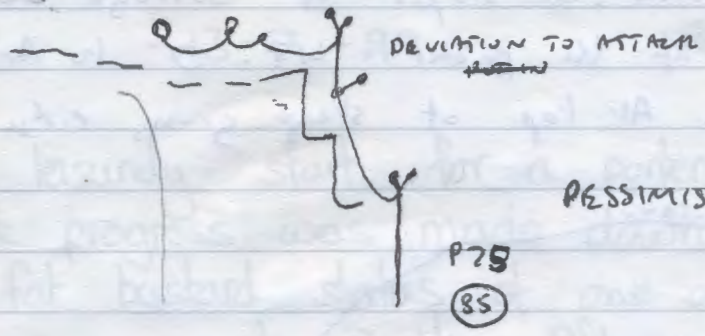 DEVIATION TO ATTACH
PESSIMIS
P75
85